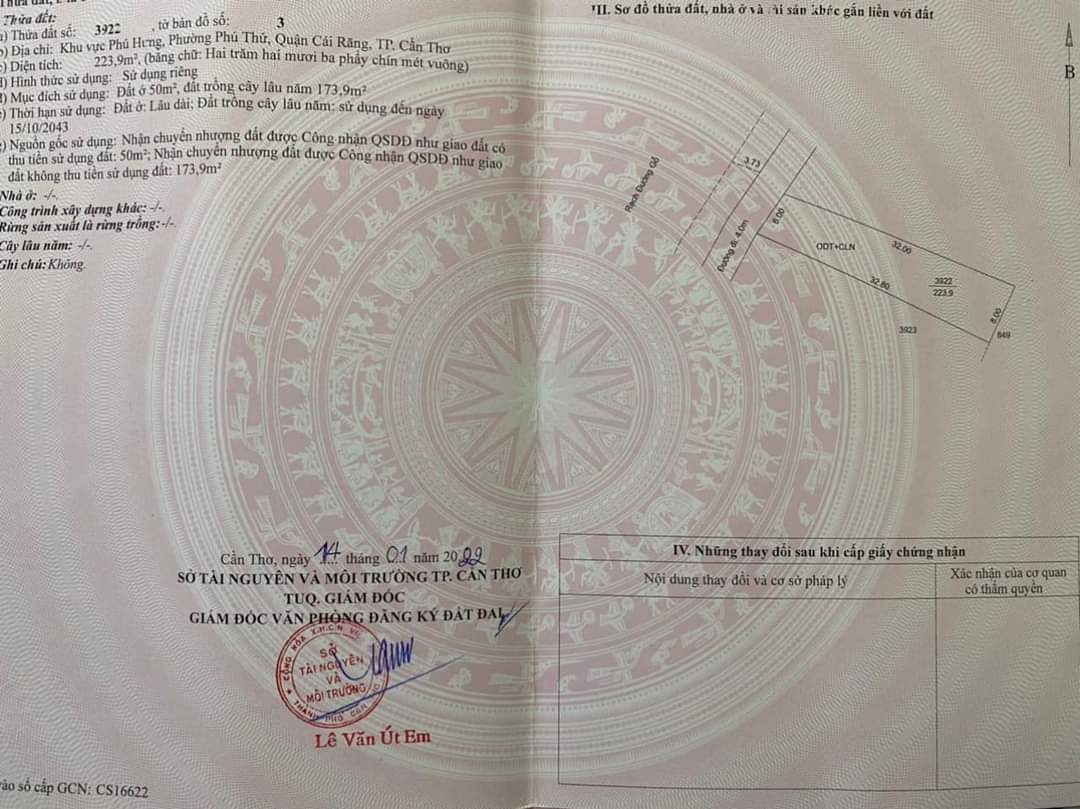 Thửa đất:
a) Thửa đất số: 3922 , tờ bản đồ số: 3
b) Địa chỉ: Khu vực Phú Hưng, Phường Phú Thứ, Quận Cái Răng, TP. Cần Thơ
c) Diện tích: 223,9m², (bằng chữ: Hai trăm hai mươi ba phẩy chín mét vuông)
d) Hình thức sử dụng: Sử dụng riêng
Mục đích sử dụng: Đất ở 50m², đất trồng cây lâu năm 173,9m²
Thời hạn sử dụng: Đất ở: Lâu dài; Đất trồng cây lâu năm: sử dụng đến ngày
15/10/2043
Nguồn gốc sử dụng: Nhận chuyển nhượng đất được Công nhận QSDĐ như giao đất có
thu tiền sử dụng đất: 50m²; Nhận chuyển nhượng đất được Công nhận QSDĐ như giao
đất không thu tiền sử dụng đất: 173,9m²
Nhà ở: -/-.
Công trình xây dựng khác: -/-.
Rừng sản xuất là rừng trồng: -/-.
Cây lâu năm: -/-.
Ghi chú: Không.
Cần Thơ, ngày 14 tháng 01 năm 2022
SỞ TÀI NGUYÊN VÀ MÔI TRƯỜNG TP. CẦN THƠ
TUQ. GIÁM ĐỐC
GIÁM ĐỐC VĂN PHÒNG ĐĂNG KÝ ĐẤT ĐAI
CỘNG HÒA X.H.C.N
SỞ
TÀI NGUYÊN
VÀ
MÔI TRƯỜNG
THÀNH PHỐ CẦN
Lê Văn Út Em
vào sổ cấp GCN: CS16622
III. Sơ đồ thửa đất, nhà ở và tài sản khác gắn liền với đất
B
Rạch Đường Gỗ
3.73
Đường đi 4.0m
8.00
ODT+CLN
32.00
32.80
3922
223.9
8.00
3923
849
IV. Những thay đổi sau khi cấp giấy chứng nhận
Nội dung thay đổi và cơ sở pháp lý
Xác nhận của cơ quan
có thẩm quyền